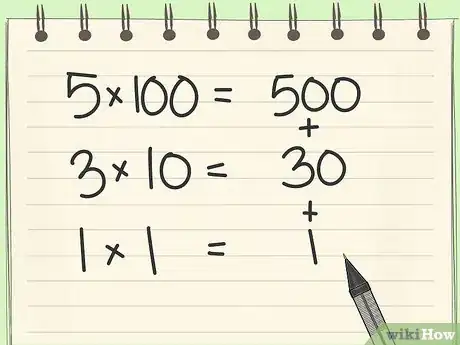 5 × 100 = 500
+
3 × 10 = 30
+
1 × 1 = 1
wikiHow